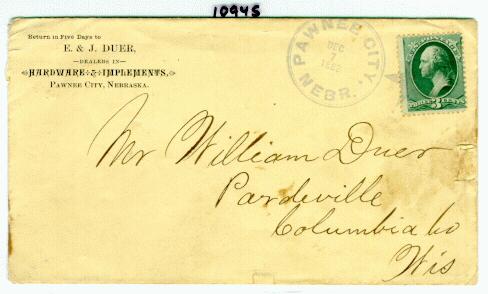 10945
Return in Five Days to
E. & J. DUER,
—DEALERS IN—
HARDWARE & IMPLEMENTS,
PAWNEE CITY, NEBRASKA.
PAWNEE CITY,
DEC
NEBR.
U.S. POSTAGE
THREE 3 CENTS
Mr William Duer
Pardeville
Columbia Co
Wis